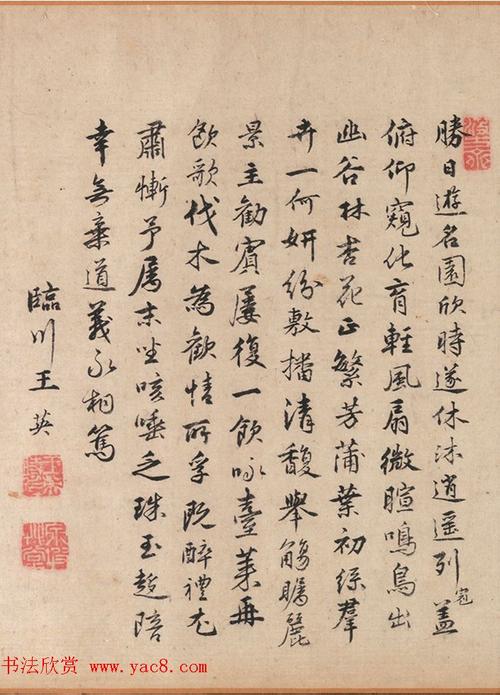 勝日遊名園欣時遂休沐逍遥列冠盖
俯仰窺化育輕風扇微暄鳴鳥出
幽谷林杏花正繁芳蒲葉初緑羣
卉一何妍紛敷播清馥舉觴矚麗
景主勸賓屢復一飲咏臺萊再
飲歌伐木為歡情所孚既醉禮尤
肅慚予属末坐咳唾乏珠玉趍陪
幸無棄道義永相篤
臨川王英
书法欣赏 www.yac8.com